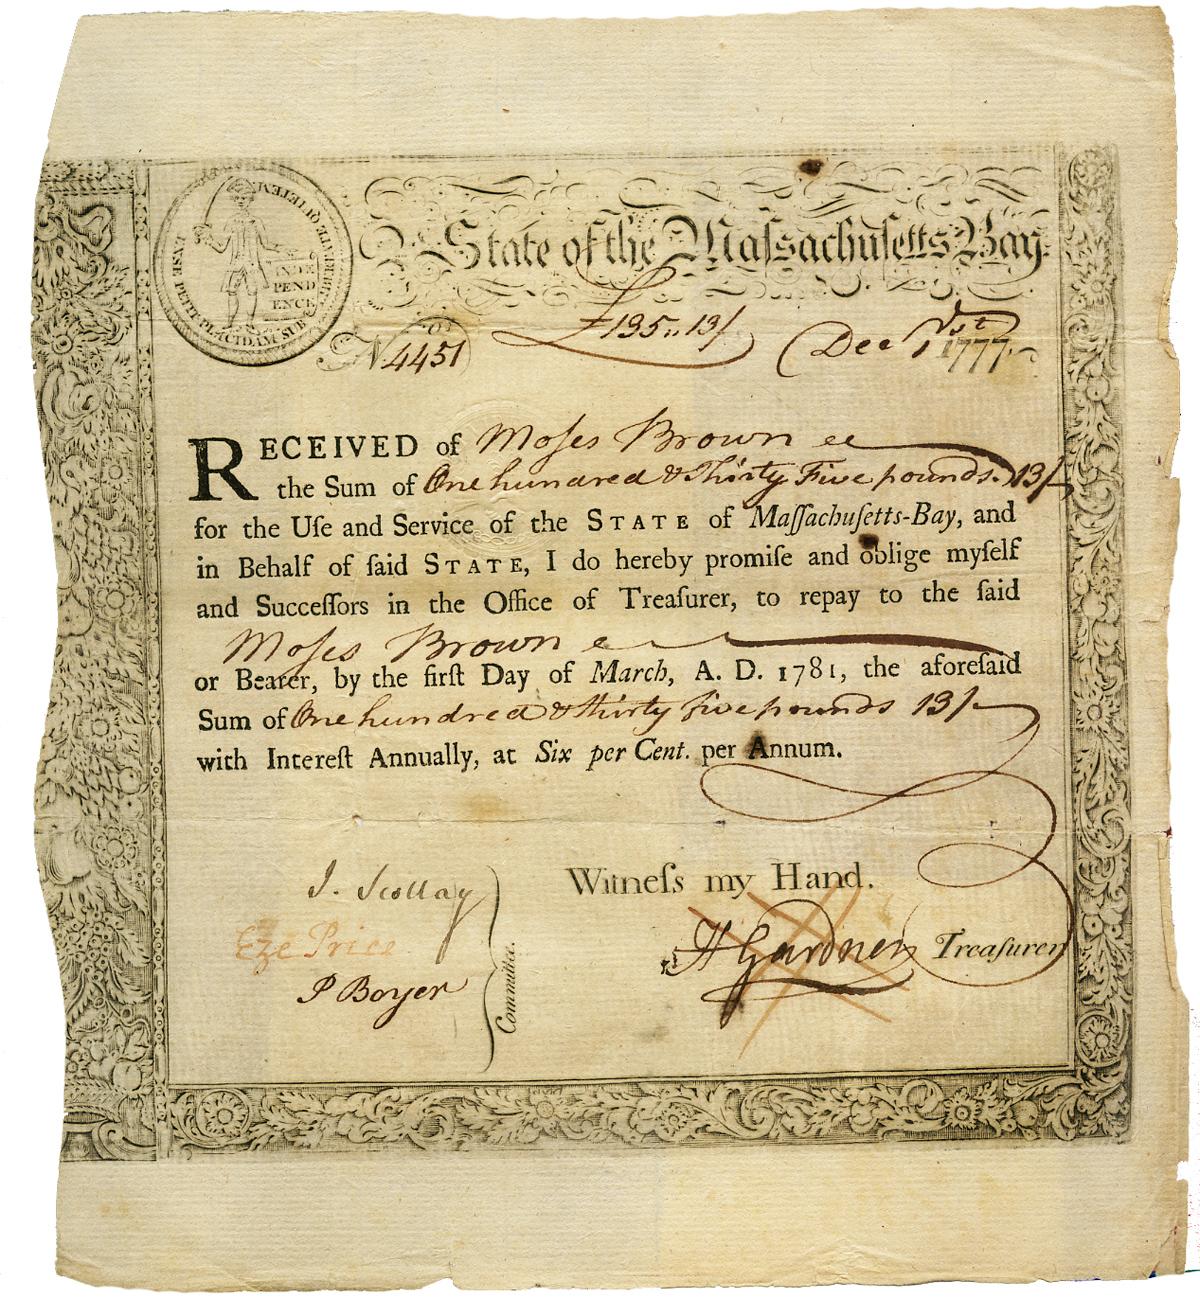 ENSE PETIT PLACIDAM SUB LIBERTATE QUIETEM
INDE
PEND
ENCE
State of the Maſsachuſetts Bay.
No. 4451
£135„13/
Dec 1st 1777.
RECEIVED of Moſes Brown
the Sum of One hundred & Thirty Five pounds. 13/
for the Uſe and Service of the STATE of Maſſachuſetts-Bay, and
in Behalf of ſaid STATE, I do hereby promiſe and oblige myſelf
and Succeſſors in the Office of Treaſurer, to repay to the ſaid
Moſes Brown
or Bearer, by the firſt Day of March, A. D. 1781, the aforeſaid
Sum of One hundred & thirty five pounds 13/
with Intereſt Annually, at Six per Cent. per Annum.
Witneſs my Hand.
J. Scollay
Eze Price
P Boyer
Committee.
H Gardner Treaſurer